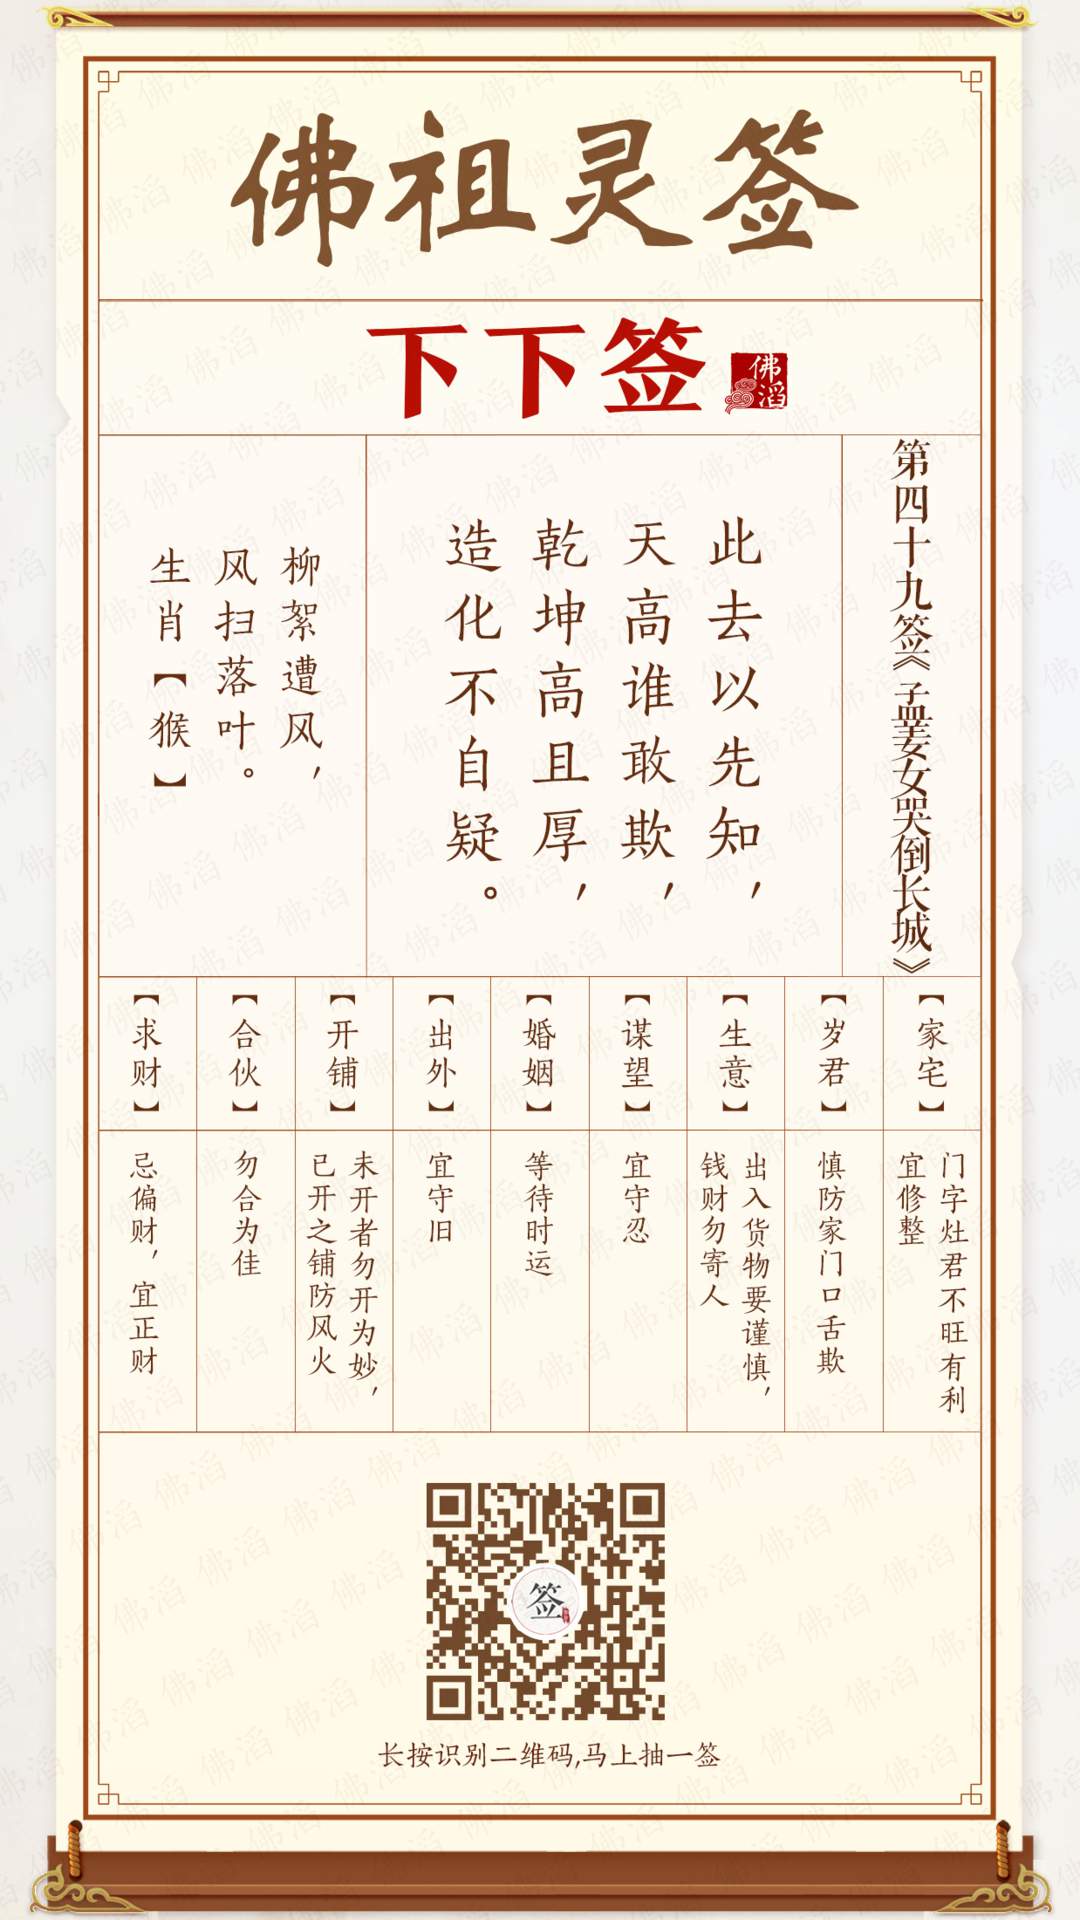 佛祖灵签
下下签
佛滔
第四十九签《孟姜女哭倒长城》
此去以先知，
天高谁敢欺，
乾坤高且厚，
造化不自疑。
柳絮遭风，
风扫落叶。
生肖【猴】
【家宅】
门字灶君不旺有利
宜修整
【岁君】
慎防家门口舌欺
【生意】
出入货物要谨慎，
钱财勿寄人
【谋望】
宜守忍
【婚姻】
等待时运
【出外】
宜守旧
【开铺】
未开者勿开为妙，
已开之铺防风火
【合伙】
勿合为佳
【求财】
忌偏财，宜正财
签
长按识别二维码,马上抽一签